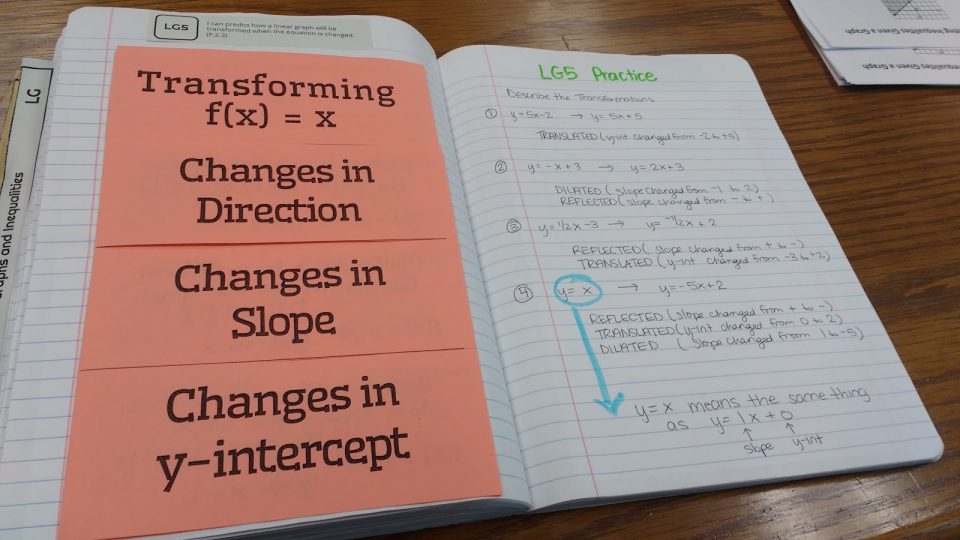 LG5
I can predict how a linear graph will be
transformed when the equation is changed.
(F.2.2)
Transforming
f(x) = x
Changes in
Direction
Changes in
Slope
Changes in
y-intercept
LG
Graphs and Inequalities
LG5 Practice
Describe the Transformations
① y=5x-2 → y=5x+5
TRANSLATED (y-int changed from -2 to +5)
② y=-x+3 → y=2x+3
DILATED (slope changed from -1 to 2)
REFLECTED (slope changed from - to +)
③ y=1/2x-3 → y=-1/2x+2
REFLECTED (slope changed from + to -)
TRANSLATED (y-int changed from -3 to +2)
④ y=x → y=-5x+2
REFLECTED (slope changed from + to -)
TRANSLATED (y-int changed from 0 to 2)
DILATED (slope changed from 1 to -5)
y=x means the same thing
as y=1x+0
slope y-int
Inequalities Given a Graph
Inequalities Given a Graph